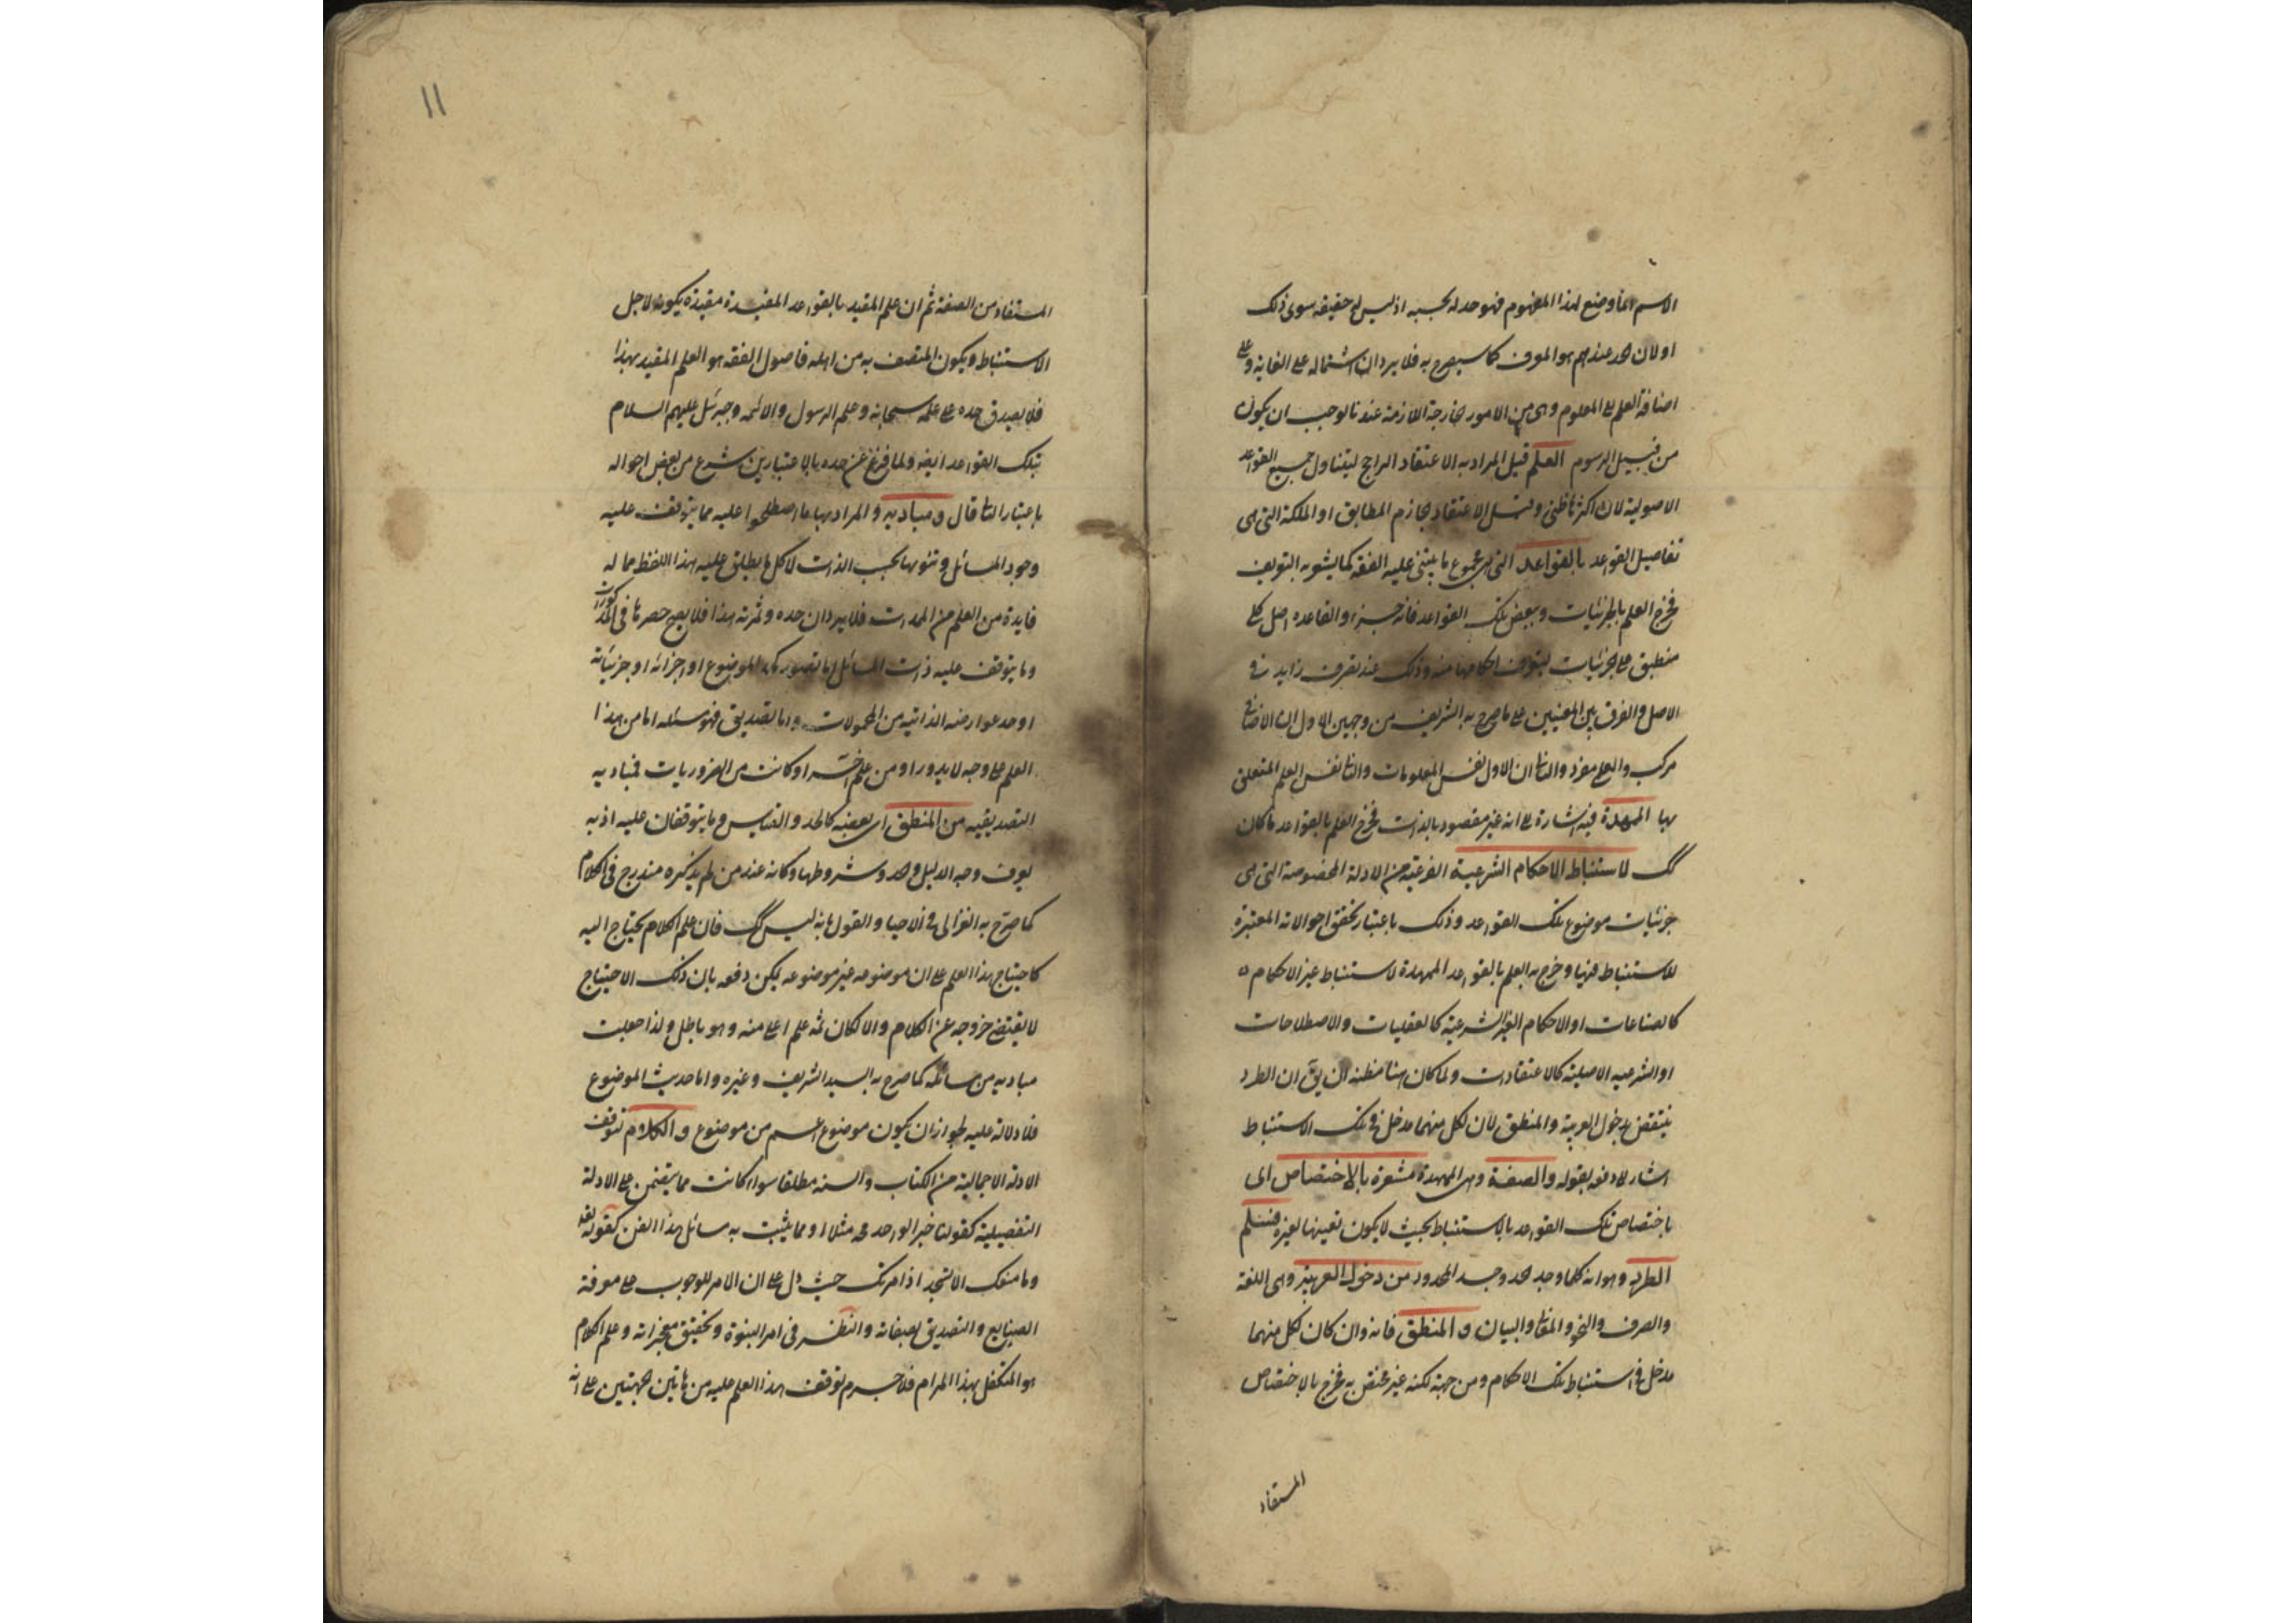 الاسم انما وضع لهذا المفهوم فهو حد له بحسبه اذ ليس له حقيقه سوى ذلك
او لان الحد عندهم هو المعرف كما سيصرح به فلا يرد ان اشتماله على الغاية وعلى
اضافة العلم الى المعلوم وهى من الامور الخارجة اللازمة عندنا لوجب ان يكون
من قبيل الرسوم العلم قيل المراد به الاعتقاد الراجح ليتناول جميع القواعد
الاصولية لان اكثرها ظنى وقيل الاعتقاد الجازم المطابق او الملكة التى هى
تفاصيل القواعد بالقواعد التى هى مجموع ما يبتنى عليه الفقه كما يشعر به التعريف
فخرج العلم بالجزئيات وببعض تلك القواعد فانه جزء والقاعده اصل كلى
منطبق على الجزئيات ليتعرف احكامها منه وذلك عند تصرف زايد فى
الاصل والفرق بين المعنيين على ما صرح به الشريف من وجهين الاول ان الاضافى
مركب والعلم مفرد والثانى ان الاول نفس المعلومات والثانى نفس العلم المتعلق
بها الممهدة فيه اشارة الى انه غير مقصود بالذات فخرج العلم بالقواعد ما كان
كك لاستنباط الاحكام الشرعية الفرعية من الادلة المخصوصة التى هى
جزئيات موضوع تلك القواعد وذلك باعتبار تحقق احوالاته المعتبرة
للاستنباط فيها وخرج به العلم بالقواعد الممهدة لاستنباط غير الاحكام
كالصناعات او الاحكام الغير الشرعية كالعقليات والاصطلاحات
او الشرعيه الاصلية كالاعتقادات ولما كان هنا مظنة ان يق ان الطرد
ينتقض بدخول العربية والمنطق لان لكل منهما مدخل فى تلك الاستنباط
اشار الى دفعه بقوله والصفة وهى الممهدة مشعرة بالاختصاص اى
باختصاص تلك القواعد بالاستنباط بحيث لا يكون تعيينها لغيره فيسلم
الطرد وهو انه كلما وجد الحد وجد المحدود من دخول العربية وهى اللغة
والصرف والنحو والمعانى والبيان و المنطق فانه وان كان لكل منهما
مدخل فى استنباط تلك الاحكام ومن جهته لكنه غير مختص به فخرج بالاختصاص
المستفاد
١١
المستفاد من الصفة ثم ان علم المقيد بالقواعد المفيدة مقيده يكون لاجل
الاستنباط ويكون المتصف به من اهله فاصول الفقه هو العلم المقيد بهذا
فلا يصدق حده على علمه سبحانه وعلم الرسول والائمه وجبرئيل عليهم السلام
بتلك القواعد ايضه ولما فرغ عن حده بالاعتبارين شرع من بعض احواله
باعتبار الثانى قال و مباديه والمراد بها ما اصطلحوا عليه مما يتوقف عليه
وجود المسائل وتنوعها بحسب الذات لا كل ما يطلق عليه هذا اللفظ مما له
فايدة من العلم من المحدات فلا يرد ان حده وثمرته هذا فلا يصح حصرها فى المذكورات
وما يتوقف عليه ذات المسائل اما تصور كحد الموضوع او اجزائه او جزئياته
او حد عوارضه الذاتيه من المحمولات واما تصديق فهو مسئله اما من هذا
العلم على وجه لا يدور او من علم اخر او كانت من الضروريات فمباديه
التصديقيه من المنطق اى بعضه كالحد والقياس وما يتوقفان عليه اذ به
يعرف وجه الدليل والحد وشروطها وكانه عند من لم يذكره مندرج فى الكلام
كما صرح به الغزالى فى الاحيا والقول بانه ليس كك فان علم الكلام يحتاج اليه
كاحتياج هذا العلم على ان موضوعه غير موضوعه يمكن دفعه بان ذلك الاحتياج
لا يقتضى خروجه عن الكلام والا لكان ثمه علم اعلى منه وهو باطل ولذا جعلت
مباديه من مسائله كما صرح به السيد الشريف وغيره واما حديث الموضوع
فلا دلالة عليه لجواز ان يكون موضوع اعم من موضوع و الكلام لتوقف
الادلة الاجمالية من الكتاب والسنه مطلقا سواء كانت مما يتضمن على الادلة
التفصيلية كقولنا خبر الواحد حجه مثلا او مما يثبت به مسائل هذا الفن كقوله تعه
وما منعك الا تسجد اذ امرتك حيث دل على ان الامر للوجوب على معرفة
الصانع والتصديق بصفاته والنظر فى امر النبوة وتحقيق معجزاته وعلم الكلام
هو المتكفل بهذا المرام فلا جرم توقف هذا العلم عليه من هاتين الجهتين على انه